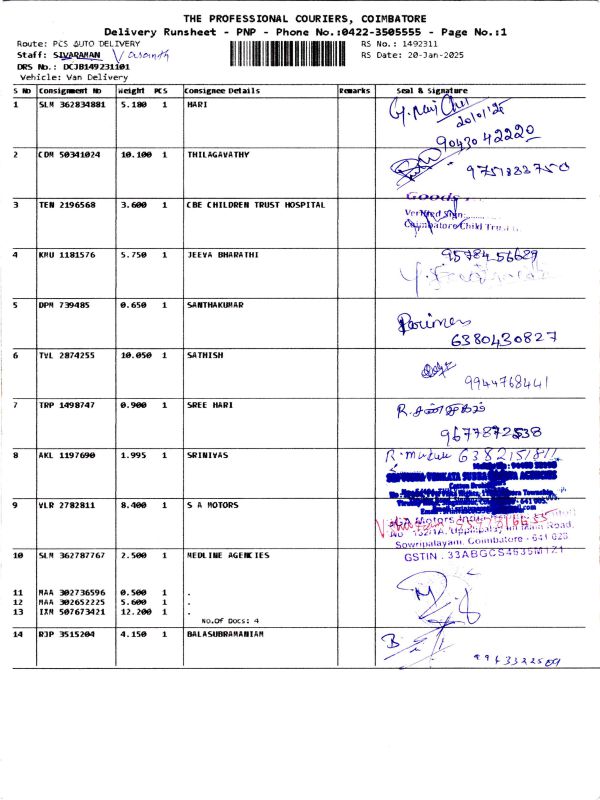 THE PROFESSIONAL COURIERS, COIMBATORE
Delivery Runsheet - PNP - Phone No.:0422-3505555 - Page No.:1
Route: PCS AUTO DELIVERY RS No.: 1492311
Staff: SIVARAMAN Vasanth RS Date: 20-Jan-2025
DRS No.: DCJB149231101
Vehicle: Van Delivery
S No Consignment No Weight PCS Consignee Details Remarks Seal & Signature
1 SLM 362834881 5.180 1 HARI
20/01/25
9043042220
2 CDM 50341024 10.100 1 THILAGAVATHY
9751333750
3 TEN 2196568 3.600 1 CBE CHILDREN TRUST HOSPITAL
Goods
Verified Sign:
Coimbatore Child Trust
4 KMU 1181576 5.750 1 JEEVA BHARATHI
95784 56629
5 DPM 739485 0.650 1 SANTHAKUMAR
6380430827
6 TVL 2874255 10.050 1 SATHISH
9944768441
7 TRP 1498747 0.900 1 SREE HARI
9677872538
8 AKL 1197690 1.995 1 SRINIVAS
6382151811
9 VLR 2782811 8.400 1 S A MOTORS
Sowripalayam, Coimbatore - 641 028
10 SLM 362787767 2.500 1 MEDLINE AGENCIES
GSTIN : 33ABGCS4635M1Z1
11 MAA 302736596 0.500 1 .
12 MAA 302652225 5.600 1 .
13 IXM 507673421 12.200 1 .
No.Of Docs: 4
14 RJP 3515204 4.150 1 BALASUBRAMANIAM